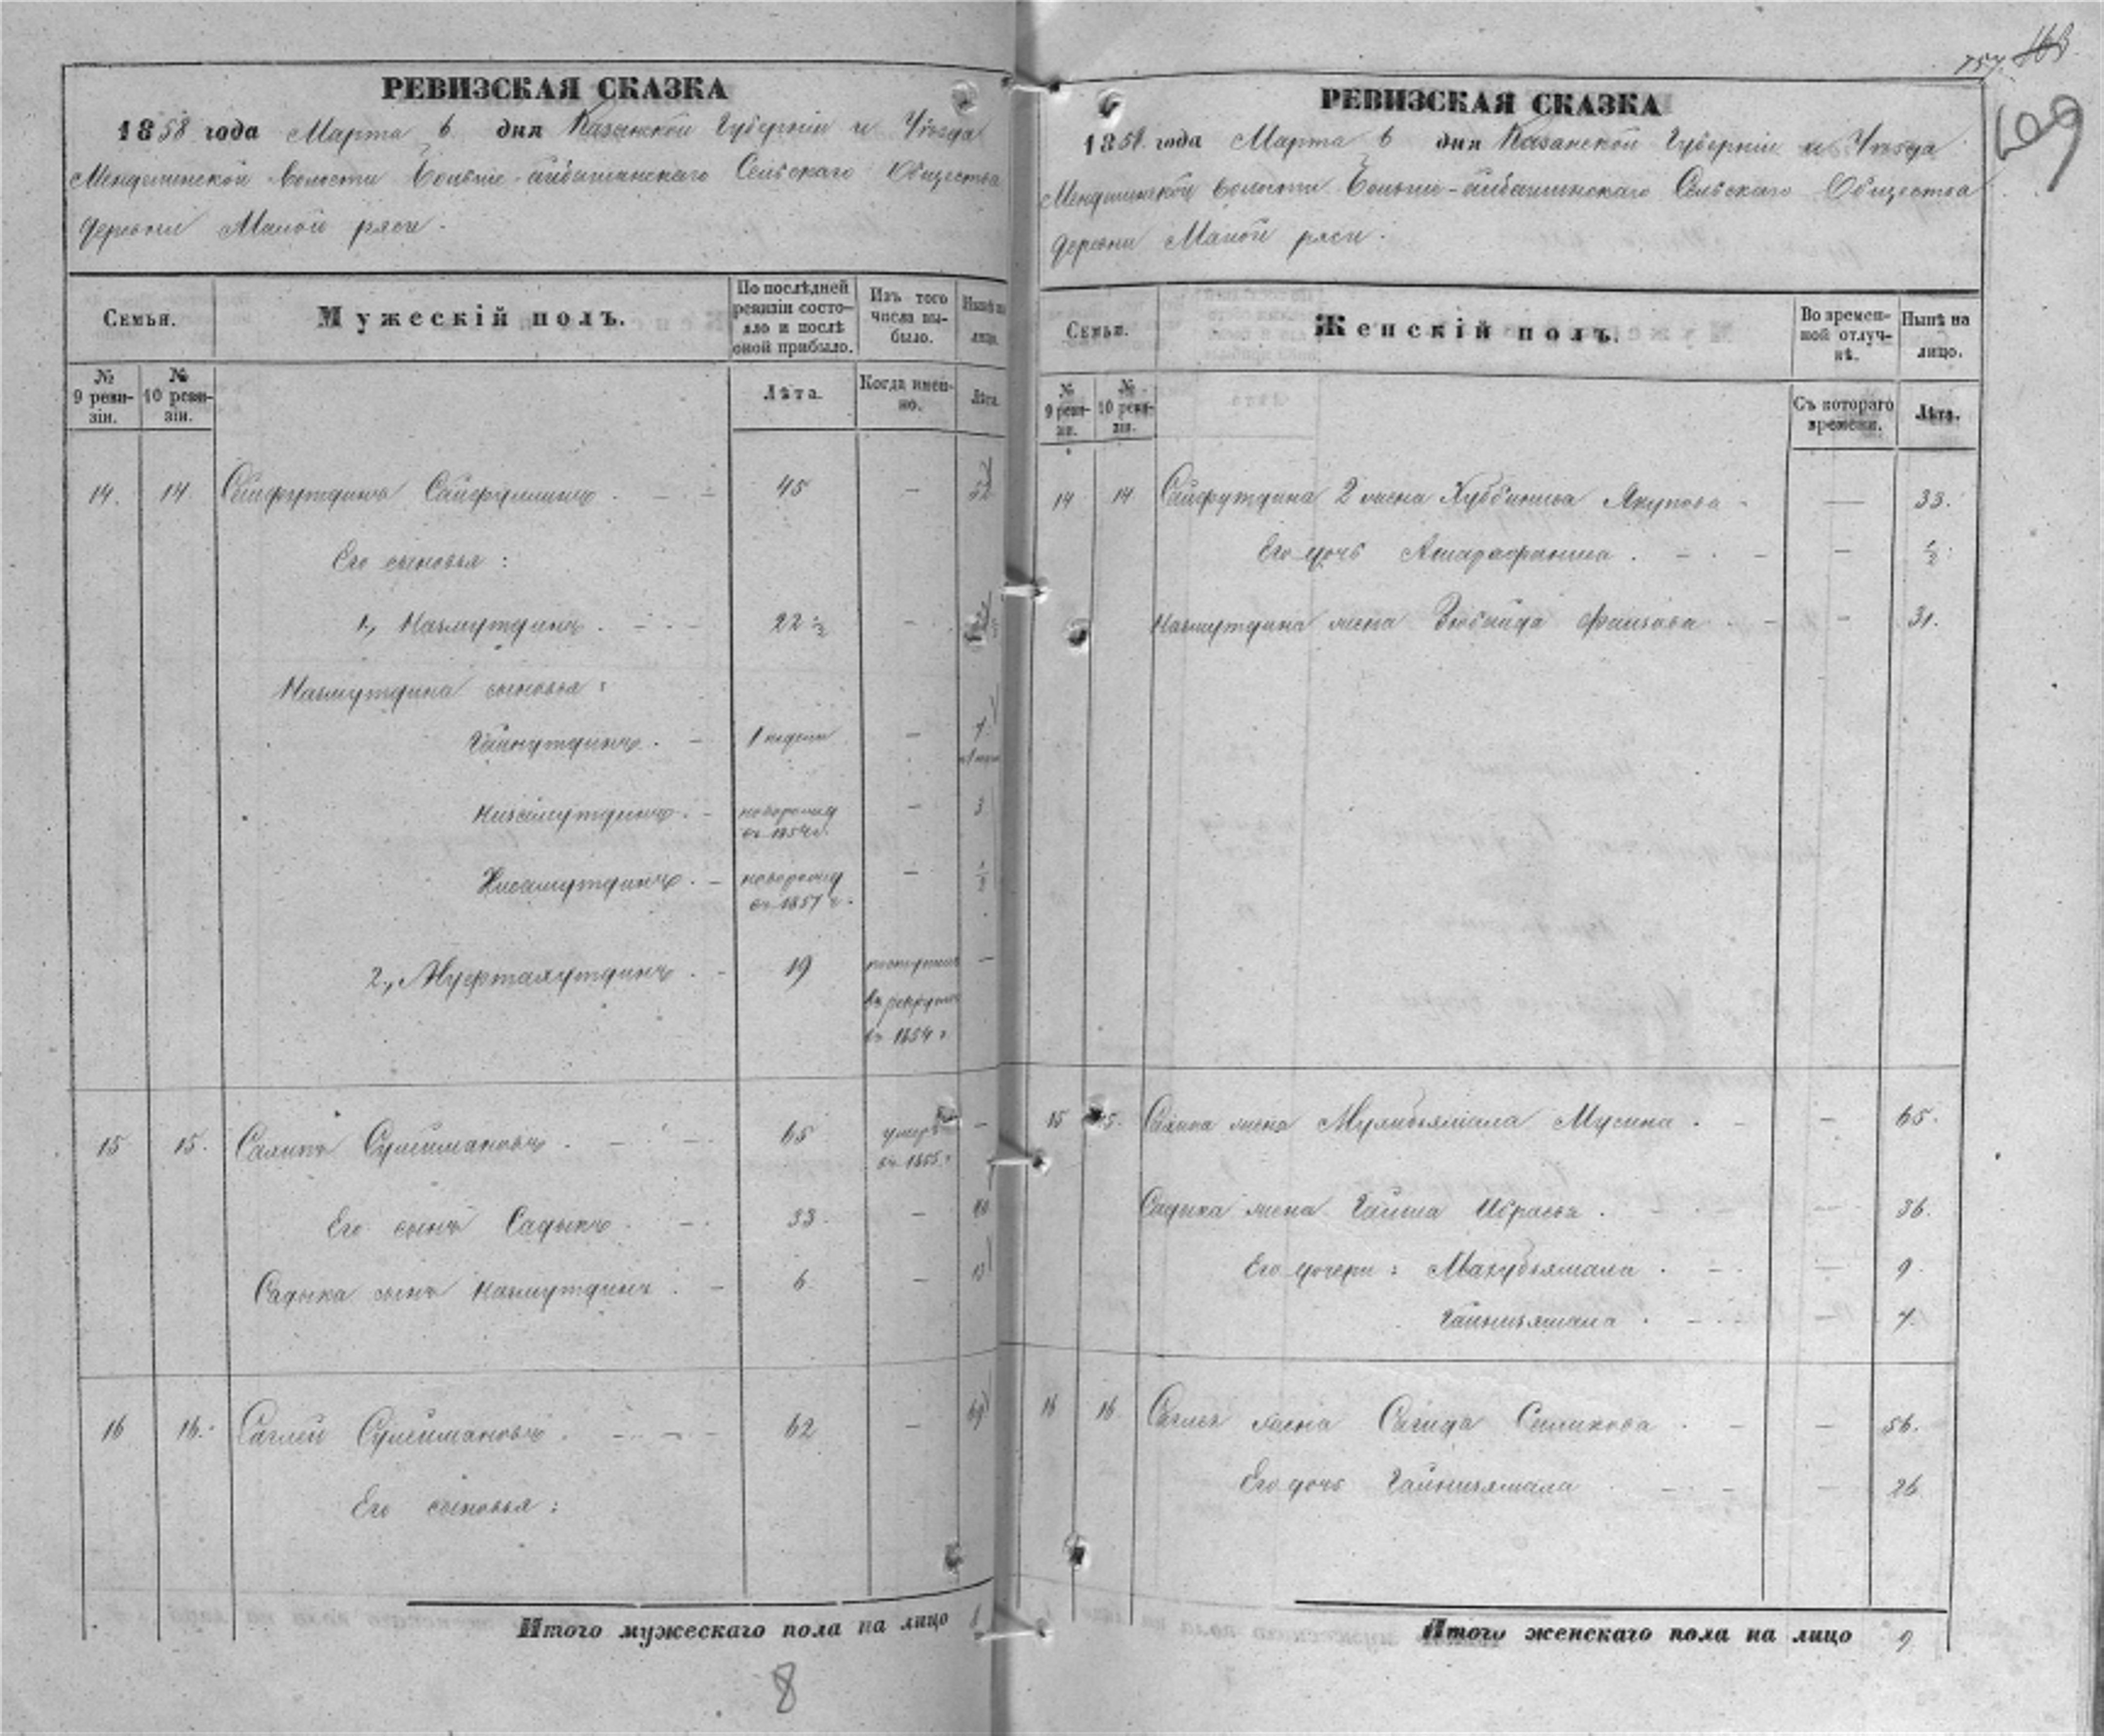 757 163
699
РЕВИЗСКАЯ СКАЗКА
1858 года Марта 6 дня Казанской Губерніи и Уѣзда
Волости Сельскаго Общества
Деревни Малой ряси.
Семьи. Мужескій полъ. По послѣдней ревизіи состояло и послѣ оной прибыло. Изъ того числа выбыло. Нынѣ на лицо.
№ 9 ревизіи. № 10 ревизіи. Лѣта. Когда именно. Лѣта.
14. 14 Сейфутдинъ Сайфуллинъ 45 — 52
Его сыновья:
1, Назмутдинъ 22 1/2 —
Назмутдина сыновья:
Гайнутдинъ. 1 недели — 7
Низамутдинъ. новорожд въ 1854 г. — 3
Хисамутдинъ. новорожд въ 1857 г. — 1/2
2, Муфтахутдинъ. 19 поступилъ въ рекруты въ 1854 г —
15 15. Салихъ Сулеймановъ. 65 умеръ въ 1855 г —
Его сынъ Садыкъ. 33. — 40
Садыка сынъ Назмутдинъ. 6. — 13
16 16. Саглей Сулеймановъ. 62 — 69
Его сыновья:
Итого мужескаго пола на лицо 8
8
РЕВИЗСКАЯ СКАЗКА
1858 года Марта 6 дня Казанской Губерніи и Уѣзда
Волости Сельскаго Общества
Деревни Малой ряси.
Семьи. Женскій полъ. Во временной отлучкѣ. Нынѣ на лицо.
№ 9 ревизіи. № 10 ревизіи. Съ котораго времени. Лѣта.
14 14 Сайфутдина 2 жена Хуббиниса Якупова — 33.
Его дочь — 1/2.
Назмутдина жена Зюбайда Фаизова — 31.
15 15. Салиха жена Мусина. — 65.
Садыка жена Гайша Ибраева. — 36.
Его дочери: Махубзямала. — 9.
Гайнизямала. — 7.
16 16 Саглея жена Сагида Саликова — 56.
Его дочь Гайнизямала — 26
Итого женскаго пола на лицо 9